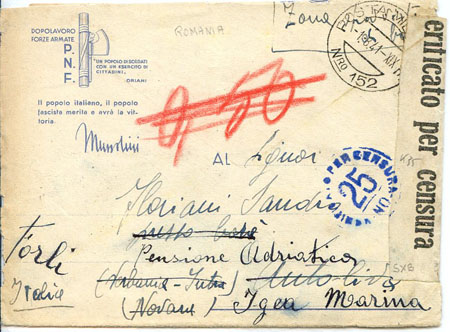 ROMANIA
DOPOLAVORO
FORZE ARMATE
P.
N.
F.
UN POPOLO DI SOLDATI
CON UN ESERCITO DI
CITTADINI.
ORIANI
Il popolo italiano, il popolo
fascista merita e avrà la vit-
toria.
Mussolini
0,50
POSTA
Nro 152
erticato per censura
VERIFICATO PER CENSURA
25
AL Signor
Floriani Sandro
presso
Pensione Adriatica
(Novara) Igea Marina
Forlì
Italia
SXB